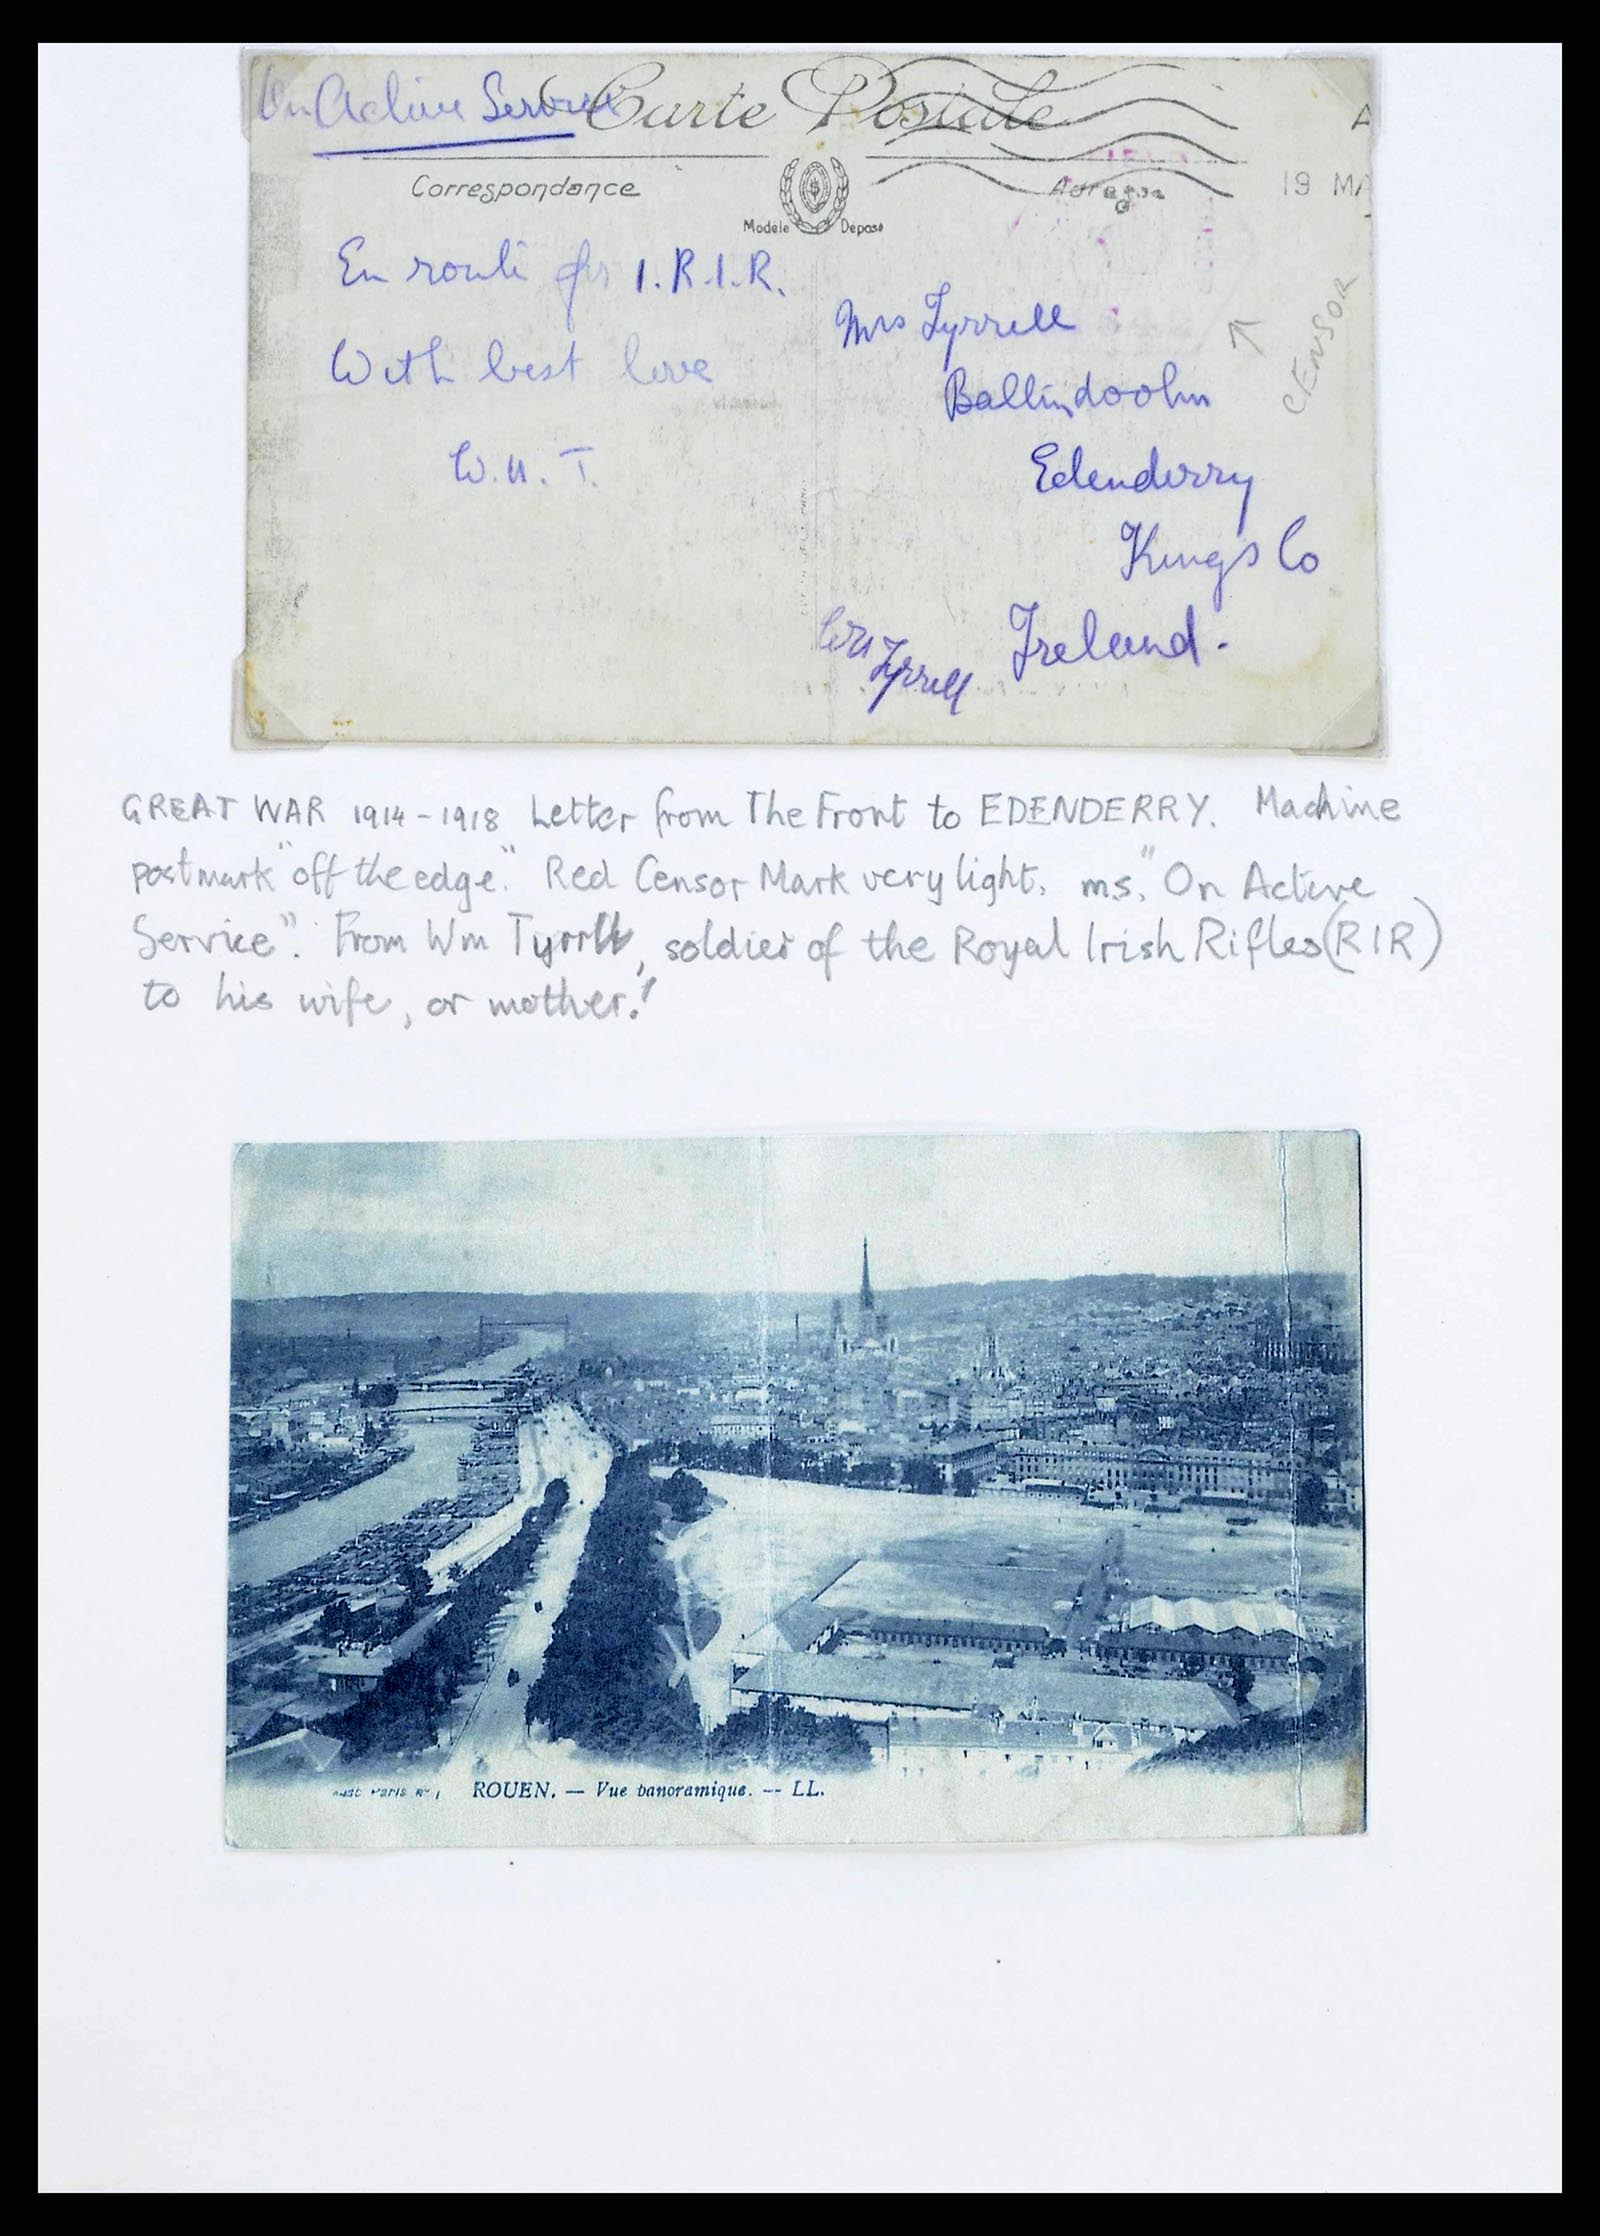 On Active Service
Carte Postale
A
Correspondance
Adresse
19 MA
Modèle Déposé
En route for 1.R.I.R.
With best love
W.U.T.
Mrs Tyrrell
Edenderry
Kings Co
Ireland.
Tyrrell
CENSOR
GREAT WAR 1914-1918 Letter from The Front to EDENDERRY. Machine
postmark "off the edge." Red Censor Mark very light. ms. "On Active
Service". From Wm Tyrrll, soldier of the Royal Irish Rifles (RIR)
to his wife, or mother!
ROUEN. — Vue panoramique. — LL.